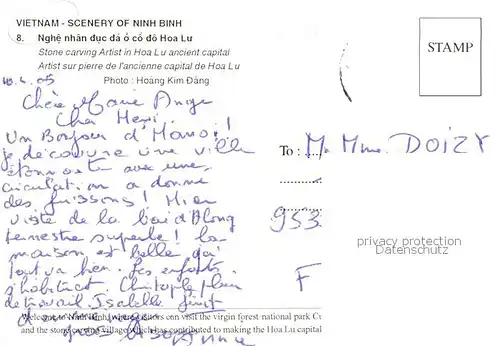 VIETNAM - SCENERY OF NINH BINH
8. Nghệ nhân đục đá ở cố đô Hoa Lư
Stone carving Artist in Hoa Lu ancient capital
Artist sur pierre de l'ancienne capital de Hoa Lu
Photo : Hoàng Kim Đáng
STAMP
Chère Marie Ange
Cher Henri.
Un Bonjour d'Hanoi !
je découvre une ville
étonnante avec une
circulation a donner
des frissons ! Hier
visite de la baie d'Along
terrestre superbe ! la
maison est belle
tout va bien. les enfants
s'habituent. Christophe plein
de travail. Isabelle
To : M. Mme DOIZY
953
F
privacy protection
Datenschutz
Welcome to Ninh Binh, visitors can visit the virgin forest national park
and the stone carving village which has contributed to making the Hoa Lu capital